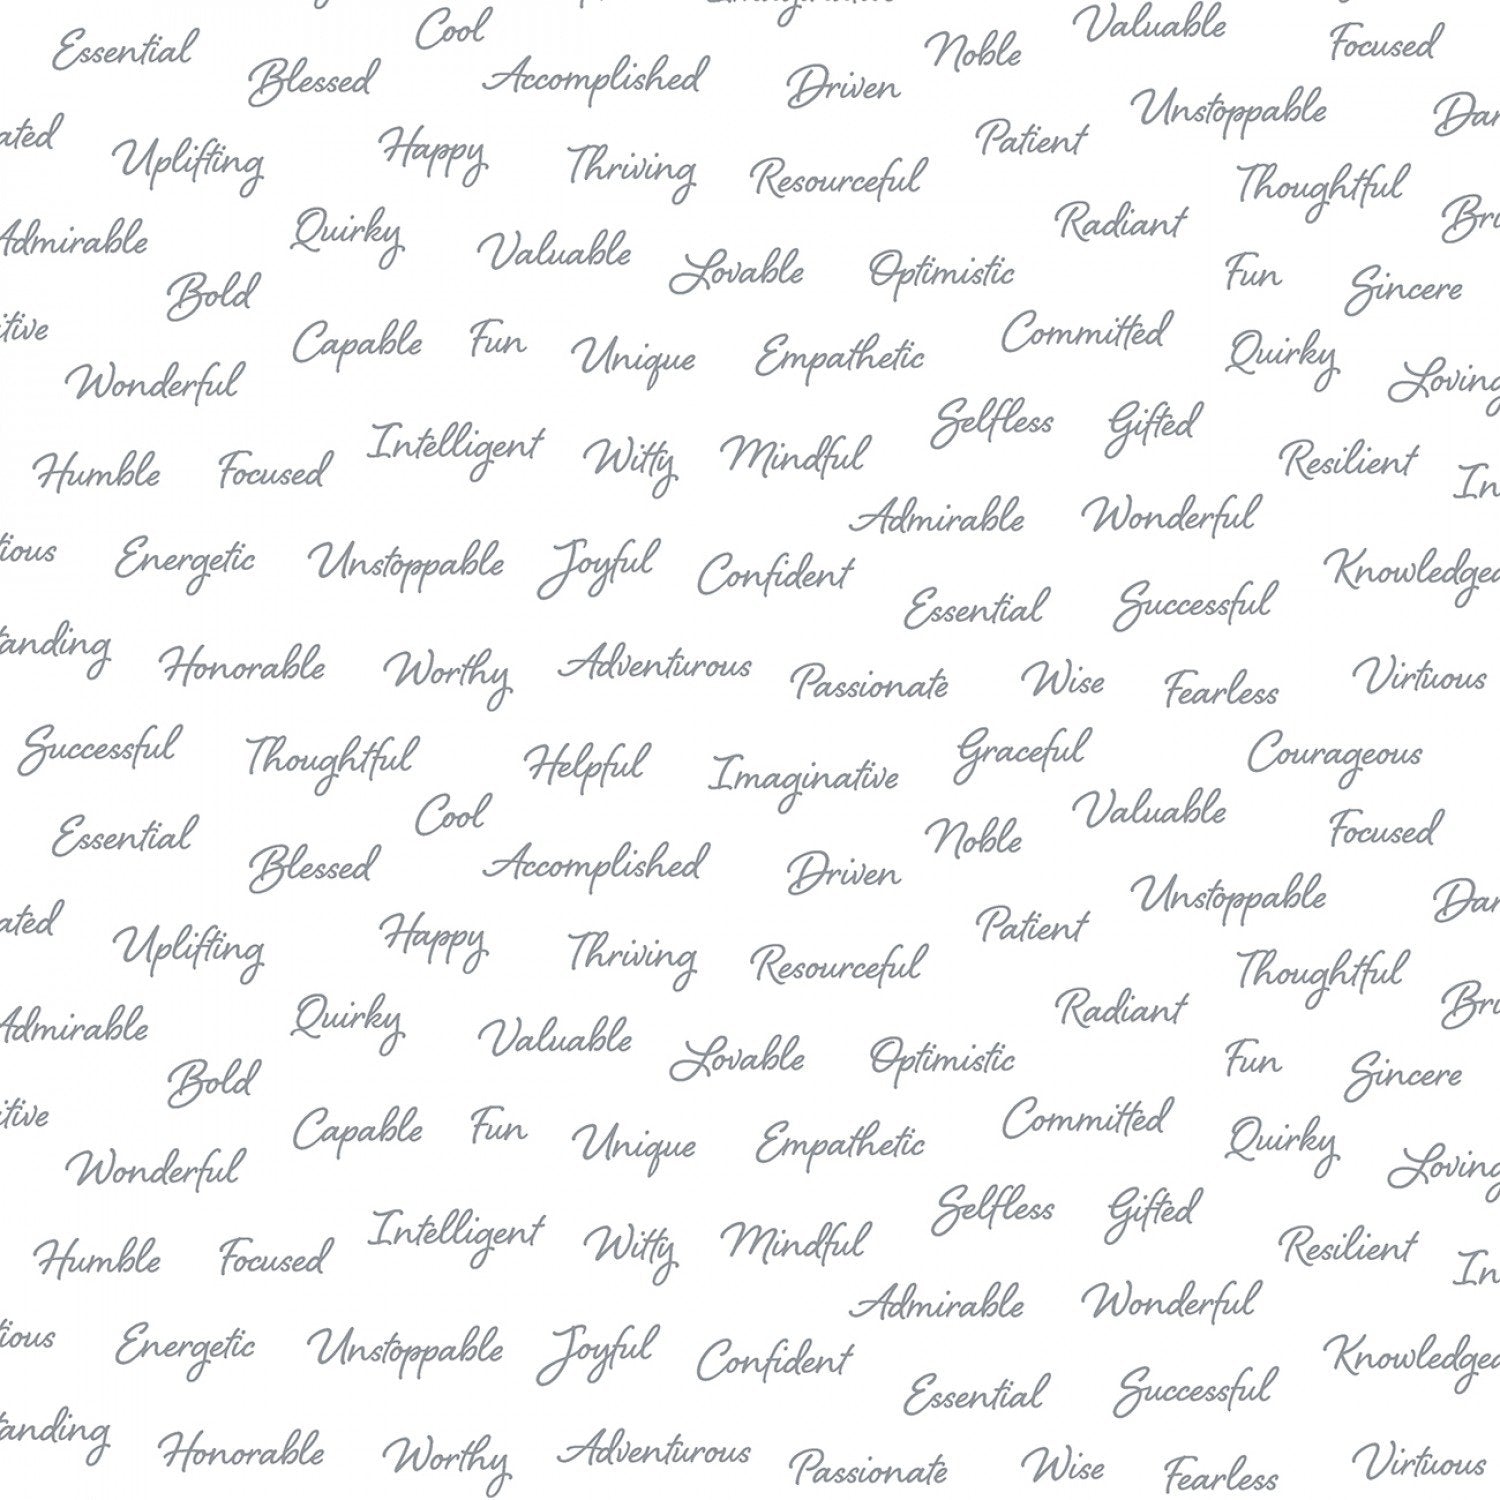 Essential Cool Noble Valuable Focused
Blessed Accomplished Driven Unstoppable
Uplifting Happy Thriving Resourceful Patient Thoughtful
Admirable Quirky Valuable Lovable Optimistic Radiant Fun Sincere
Bold Capable Fun Unique Empathetic Committed Quirky Loving
Wonderful Selfless Gifted
Humble Focused Intelligent Witty Mindful Resilient
Admirable Wonderful
Energetic Unstoppable Joyful Confident Essential Successful
Honorable Worthy Adventurous Passionate Wise Fearless Virtuous
Successful Thoughtful Helpful Imaginative Graceful Courageous
Essential Cool Noble Valuable Focused
Blessed Accomplished Driven Unstoppable
Uplifting Happy Thriving Resourceful Patient Thoughtful
Admirable Quirky Valuable Lovable Optimistic Radiant Fun Sincere
Bold Capable Fun Unique Empathetic Committed Quirky Loving
Wonderful Selfless Gifted
Humble Focused Intelligent Witty Mindful Resilient
Admirable Wonderful
Energetic Unstoppable Joyful Confident Essential Successful
Honorable Worthy Adventurous Passionate Wise Fearless Virtuous